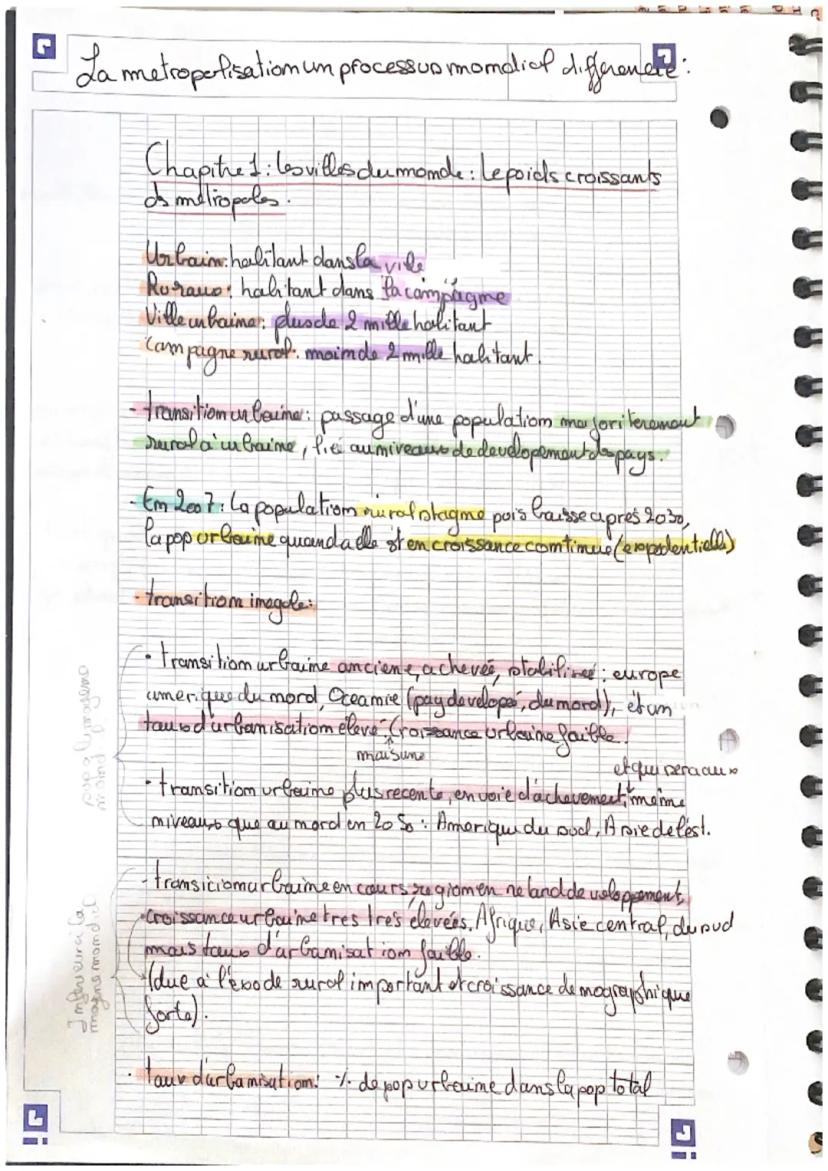 La metropolisation un processus mondial differencié:
Chapitre 1: les villes du monde: le poids croissants
ds métropoles.
Urbain: habitant dans la ville
Ruraux: habitant dans la campagne
Ville urbaine: plus de 2 mille habitant
Campagne rural: moin de 2 mille habitant.
- transition urbaine: passage d'une population majoriterement
rural à urbaine, lié au niveaux de developement des pays.
- En 2007: La population rural stagne puis baisse apres 2030,
la pop urbaine quand a elle st en croissance continue (exopedentielle)
- transition inegale:
• transition urbaine anciene, achevée, stabilisée: europe
amerique du nord, Oceanie (pay developé, du nord), et an
taux d'urbanisation élevé, croissance urbaine faible.
mais une
et qui sera aux
• transition urbaine plus recente, en voie d'achevement, même
niveaux que au nord en 2050: Amerique du sud, Asie de l'est.
- transicion urbaine en cours, region en retard de veloppement,
croissance urbaine tres tres élevées, Afrique, Asie central, du sud
mais taux d'urbanisation faible.
(due à l'exode rural important et croissance demographique
forte).
Inferieur à la
moyenne mondial
• taux d'urbanisation: % de pop urbaine dans la pop total